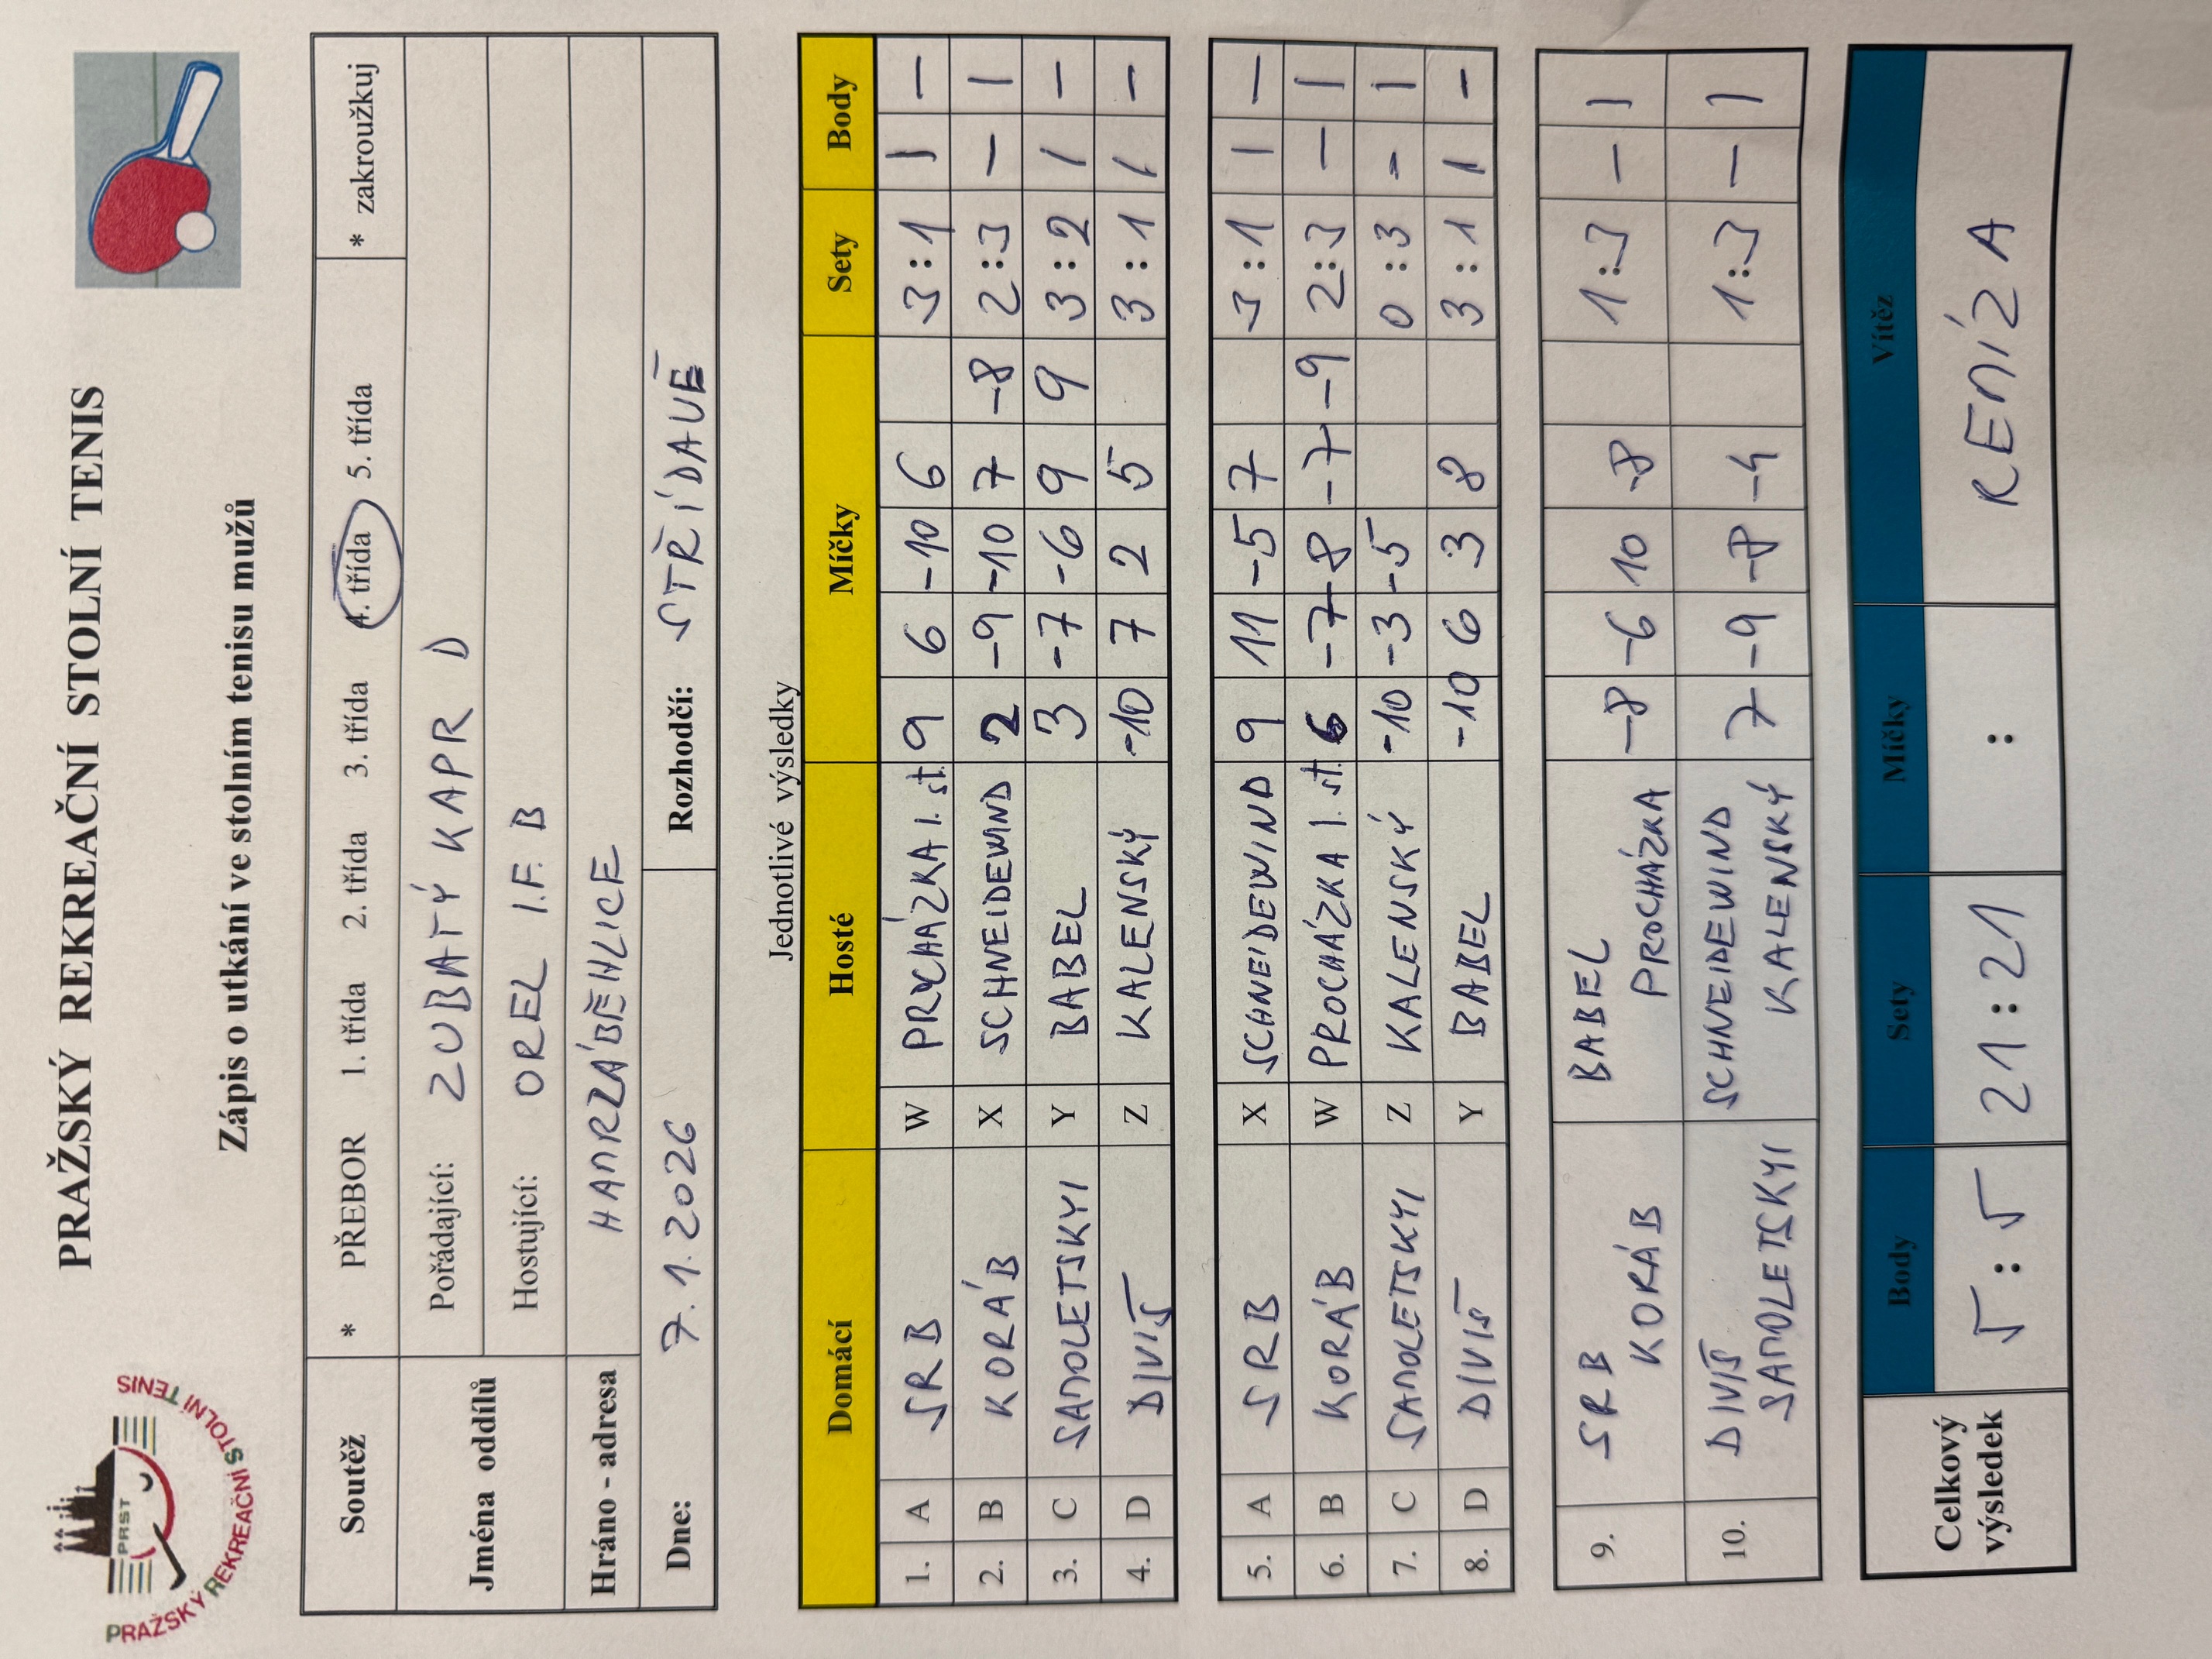 PRAŽSKÝ REKREAČNÍ STOLNÍ TENIS
PRST
PRAŽSKÝ REKREAČNÍ STOLNÍ TENIS
Zápis o utkání ve stolním tenisu mužů
Soutěž * PŘEBOR 1. třída 2. třída 3. třída 4. třída 5. třída * zakroužkuj
Jména oddílů Pořádající: ZUBATÝ KAPR D
Hostující: OREL I.F. B
Hráno - adresa HAMRZÁBĚHLICE
Dne: 7.1.2026 Rozhodčí: STŘÍDAVĚ
Jednotlivé výsledky
Domácí Hosté Míčky Sety Body
1. A SRB W PRYCHÁZKA I. st. 9 6 -10 6 3:1 1 -
2. B KORÁB X SCHNEIDEWIND 2 -9 -10 7 -8 2:3 - 1
3. C SAMOLETSKYI Y BABEL 3 -7 -6 9 9 3:2 1 -
4. D DIVIŠ Z KALENSKÝ -10 7 2 5 3:1 1 -
5. A SRB X SCHNEIDEWIND 9 11 -5 7 3:1 1 -
6. B KORÁB W PROCHÁZKA I. st. 6 -7 -8 -7 -9 2:3 - 1
7. C SAMOLETSKYI Z KALENSKÝ -10 -3 -5 0:3 - 1
8. D DIVIŠ Y BABEL -10 6 3 8 3:1 1 -
9. SRB BABEL -8 -6 10 -8 1:3 - 1
KORÁB PROCHÁZKA
10. DIVIŠ SCHNEIDEWIND 7 -9 -8 -4 1:3 - 1
SAMOLETSKYI KALENSKÝ
Celkový výsledek Body Sety Míčky Vítěz
5:5 21:21 : REMÍZA